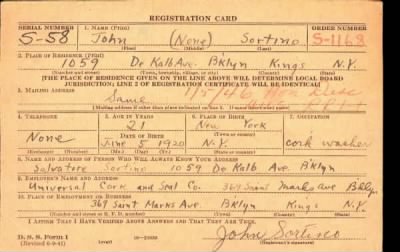 REGISTRATION CARD
SERIAL NUMBER 1. NAME (Print) ORDER NUMBER
S-58 John (None) Sortino S-1168
(First) (Middle) (Last)
2. PLACE OF RESIDENCE (Print)
1059 De Kalb Ave. B'klyn Kings N.Y.
(Number and street) (Town, township, village, or city) (County) (State)
[THE PLACE OF RESIDENCE GIVEN ON THE LINE ABOVE WILL DETERMINE LOCAL BOARD
JURISDICTION; LINE 2 OF REGISTRATION CERTIFICATE WILL BE IDENTICAL]
3. MAILING ADDRESS
Same
[Mailing address if other than place indicated on line 2. If same insert word same]
4. TELEPHONE 5. AGE IN YEARS 6. PLACE OF BIRTH 7. OCCUPATION
21 New York
None DATE OF BIRTH
June 5 1920 N.Y. cork washer
8. NAME AND ADDRESS OF PERSON WHO WILL ALWAYS KNOW YOUR ADDRESS
Salvatore Sortino 1059 De Kalb Ave B'klyn
9. EMPLOYER'S NAME AND ADDRESS
Universal Cork and Seal Co. 369 Saint Marks ave B'klyn
10. PLACE OF EMPLOYMENT OR BUSINESS
369 Saint Marks Ave. B'klyn Kings N.Y.
(Number and street or R. F. D. number) (Town) (County) (State)
I AFFIRM THAT I HAVE VERIFIED ABOVE ANSWERS AND THAT THEY ARE TRUE.
D. S. S. FORM 1
(Revised 6-9-41)
John Sortino